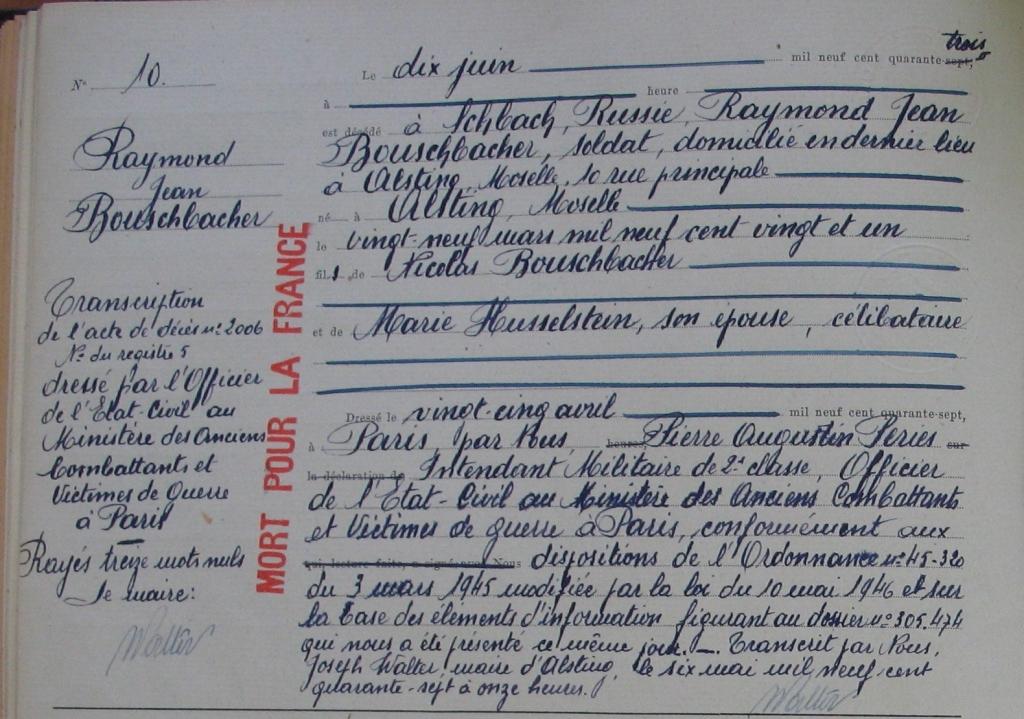 N° 10.
Raymond
Jean
Bouschbacher
Transcription
de l'acte de décès n° 2006
N° du registre 5
dressé par l'Officier
de l'Etat-Civil au
Ministère des Anciens
Combattants et
Victimes de Guerre
à Paris
Rayés treize mots nuls
Le maire:
Walter
MORT POUR LA FRANCE
trois
Le dix juin mil neuf cent quarante-sept,
à heure
est décédé à Ichbach, Russie, Raymond Jean
Bouschbacher, soldat, domicilié en dernier lieu
à Alsting, Moselle, 10 rue principale
né à Alsting, Moselle
le vingt-neuf mars mil neuf cent vingt et un
fils de Nicolas Bouschbacher
et de Marie Husselstein, son épouse, célibataire
Dressé le vingt-cinq avril mil neuf cent quarante-sept,
à Paris, par Nous, heures, Pierre Augustin Peries sur
la déclaration de Intendant Militaire de 2e classe, Officier
de l'Etat-Civil au Ministère des Anciens Combattants
et Victimes de guerre à Paris, conformément aux
qui, lecture faite, a signé avec Nous dispositions de l'Ordonnance n° 45-320
du 3 mars 1945 modifiée par la loi du 10 mai 1946 et sur
la base des éléments d'information figurant au dossier n° 305.474
qui nous a été présenté ce même jour. — Transcrit par Nous,
Joseph Walter, maire d'Alsting, le six mai mil neuf cent
quarante-sept à onze heures.
Walter